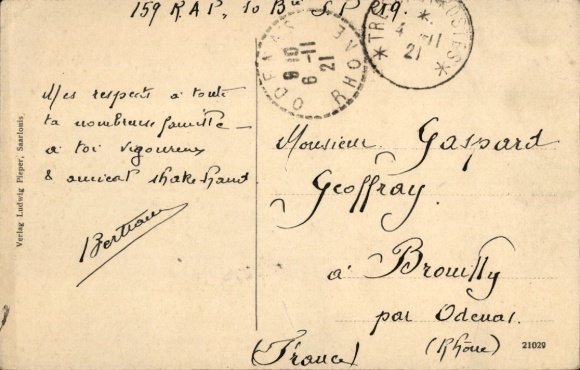 159 R.A.P. 10 Bie S.P 219.
ODENAS
6 -11
21
RHONE
TRE POSTES
4 -11
21
Mes respects à toute
ta nombreuse famille
à toi vigoureux
& amical shake hand
Bertrand
Monsieur Gaspard
Geoffray.
à Brouilly
par Odenas.
(Rhône)
(France)
Verlag Ludwig Pieper, Saarlouis
21029